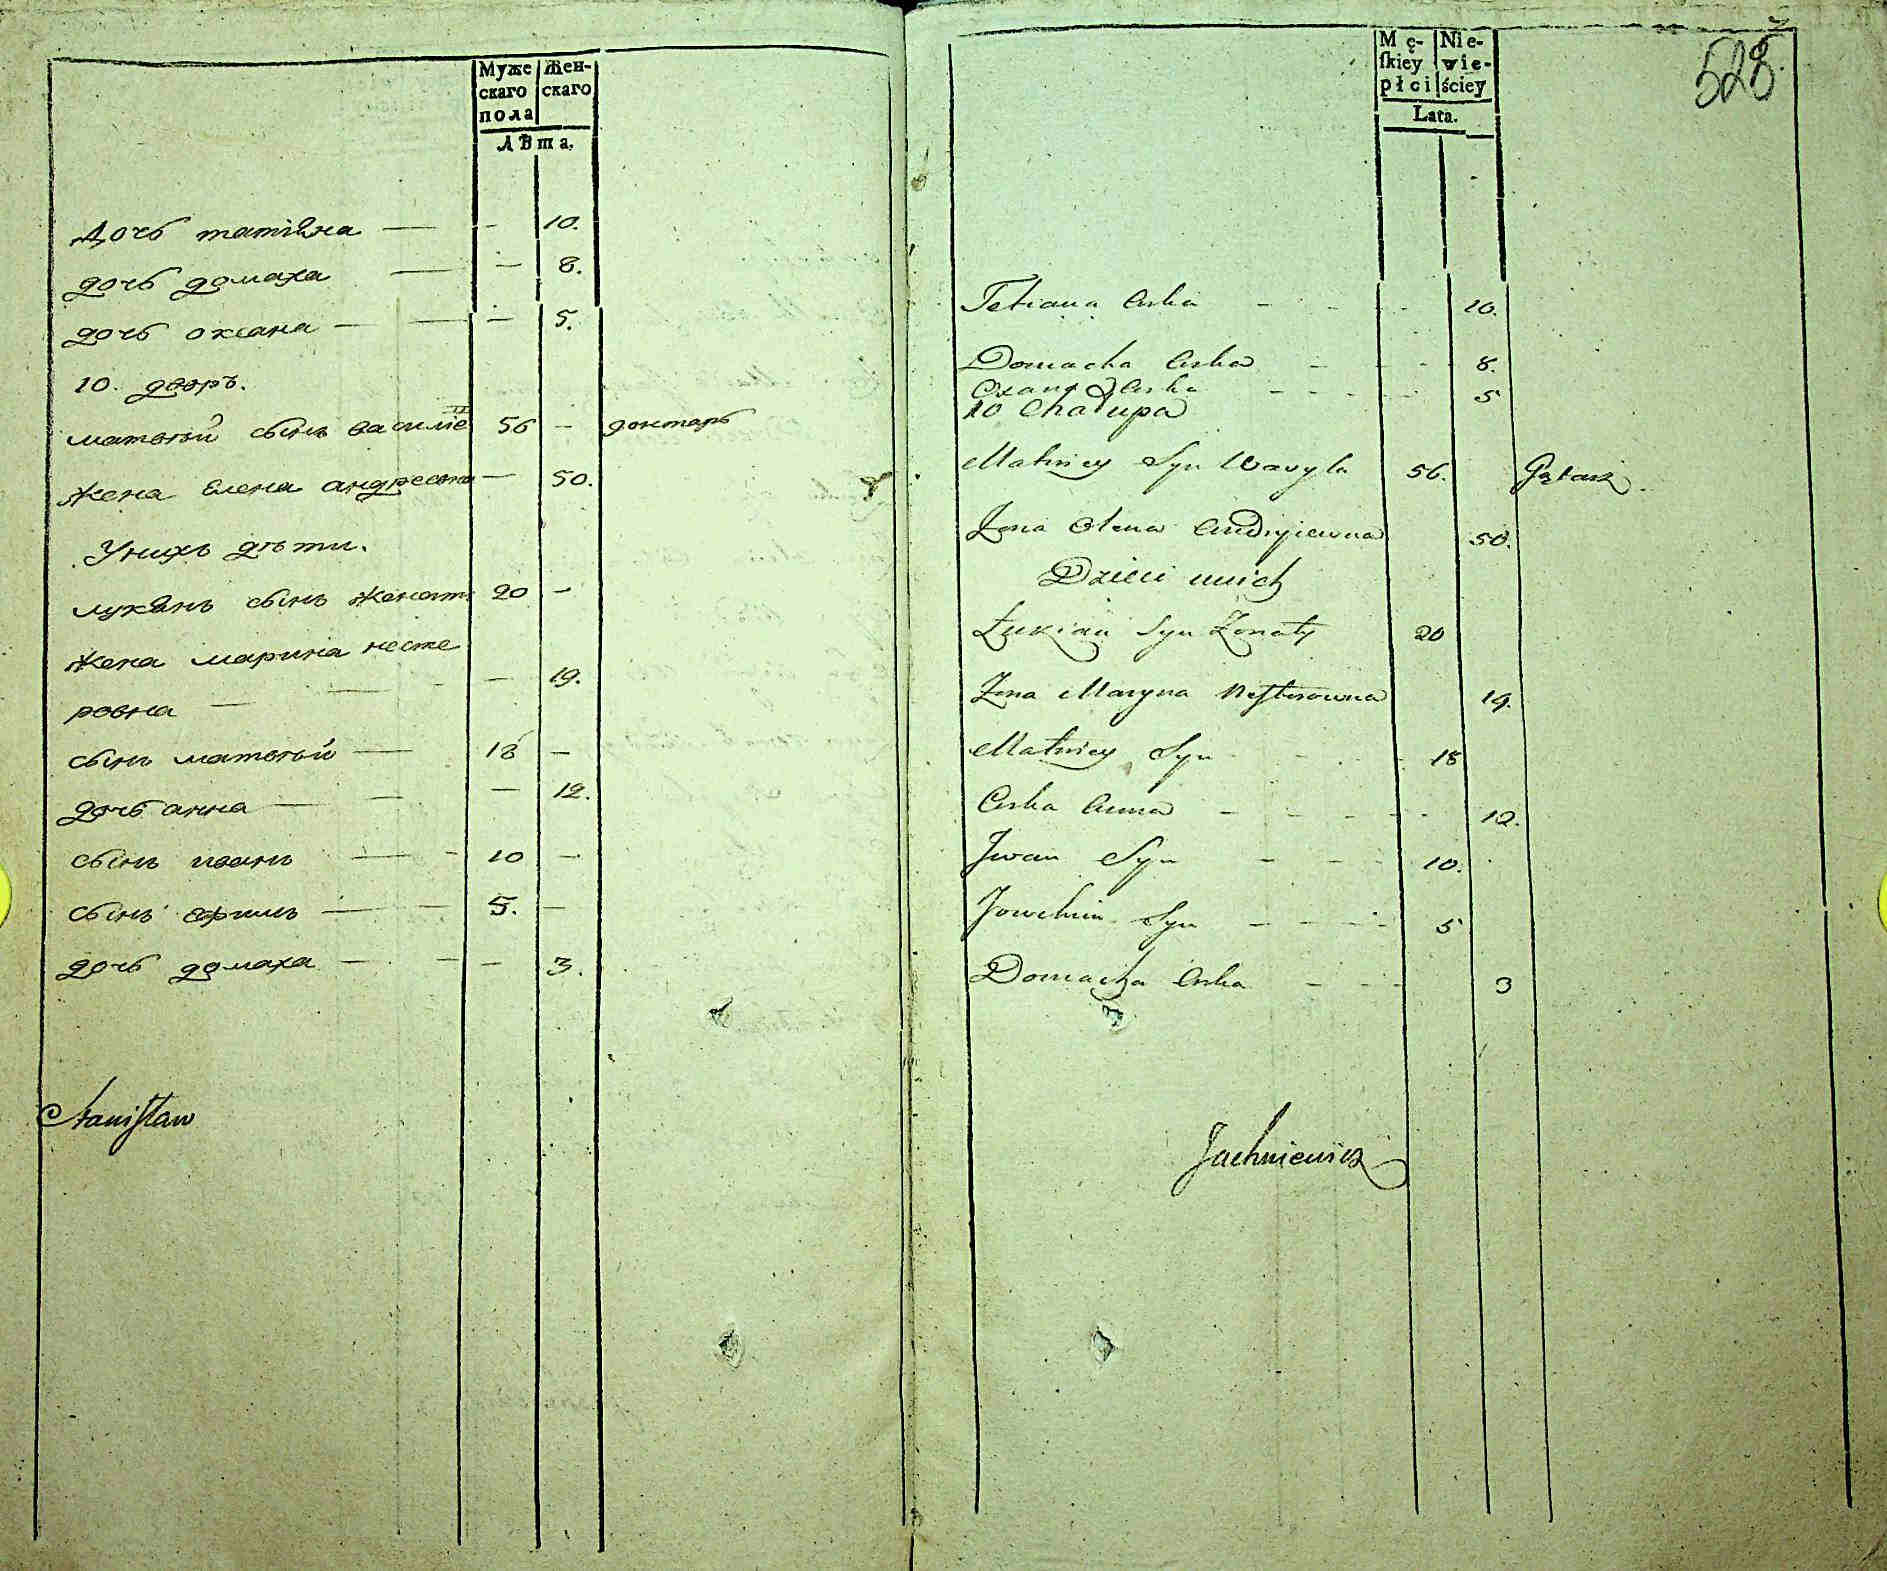 Муже
скаго
пола
Жен-
скаго
лѣта.
дочь татіана — - 10.
дочь домаха — - 8.
дочь оксана — - 5.
10. дворъ.
матвѣй сынъ василіе 56 - доктаръ
жена Елена андреевна - 50.
У нихъ дѣти.
лукянъ сынъ женат: 20 -
жена марина несте
ровна — - 19.
сынъ матвѣй — 18 -
дочь анна — - 12.
сынъ иванъ — 10 -
сынъ ефимъ — 5. -
дочь домаха — - 3.
Staniſław
528.
Mę-
ſkiey
płci
Nie-
wie-
ściey
Lata.
Tetiana Curka - - 10.
Domacha Curka - - 8.
Oxana Curka - - 5
10 Chałupa
Matwiey Syn Wasyla 56.
Żona Olena Andryiewna 50.
Dzieci unich
Łukian Syn Żonaty 20
Żona Maryna Nesterowna 19.
Matwiey Syn - - 18
Curka Anna - - 12.
Jwan Syn - - 10.
Jowchim Syn - - 5
Domacha Curka - - 3
Jachniewicz